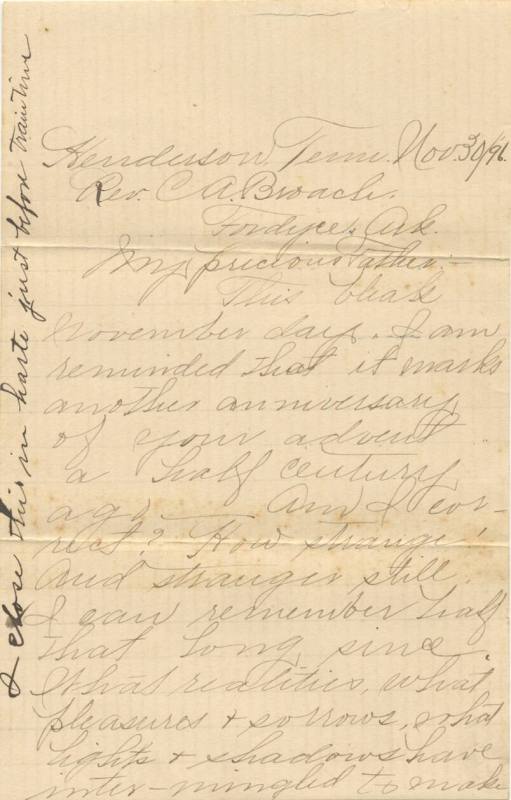 Henderson, Tenn. Nov. 30/96.
Rev. C. A. Broach.
Fordyce, Ark.
My precious Father:-
This bleak
November day. I am
reminded that it marks
another anniversary
of your advent
a half century
ago — Am I cor-
rect? How strange!
And stranger still.
I can remember half
that long since.
What realities, what
pleasures + sorrows, what
lights + shadows have
inter-mingled to make
I close this in haste just before train time